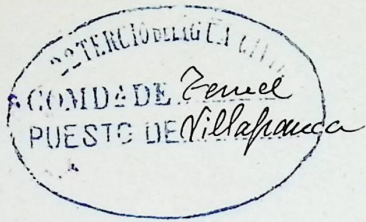 22 TERCIO DE LA GUARDIA CIVIL
COMDª DE Teruel
PUESTO DE Villafranca